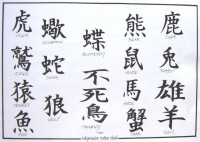 虎
TIGER
鷲
EAGLE
猿
魚
蠍
SCORPION
蛇
狼
WOLF
蝶
BUTTERFLY
不死鳥
熊
BEAR
鼠
馬
HORSE
蟹
CRAB
鹿
DEER
兎
雄羊
RAM